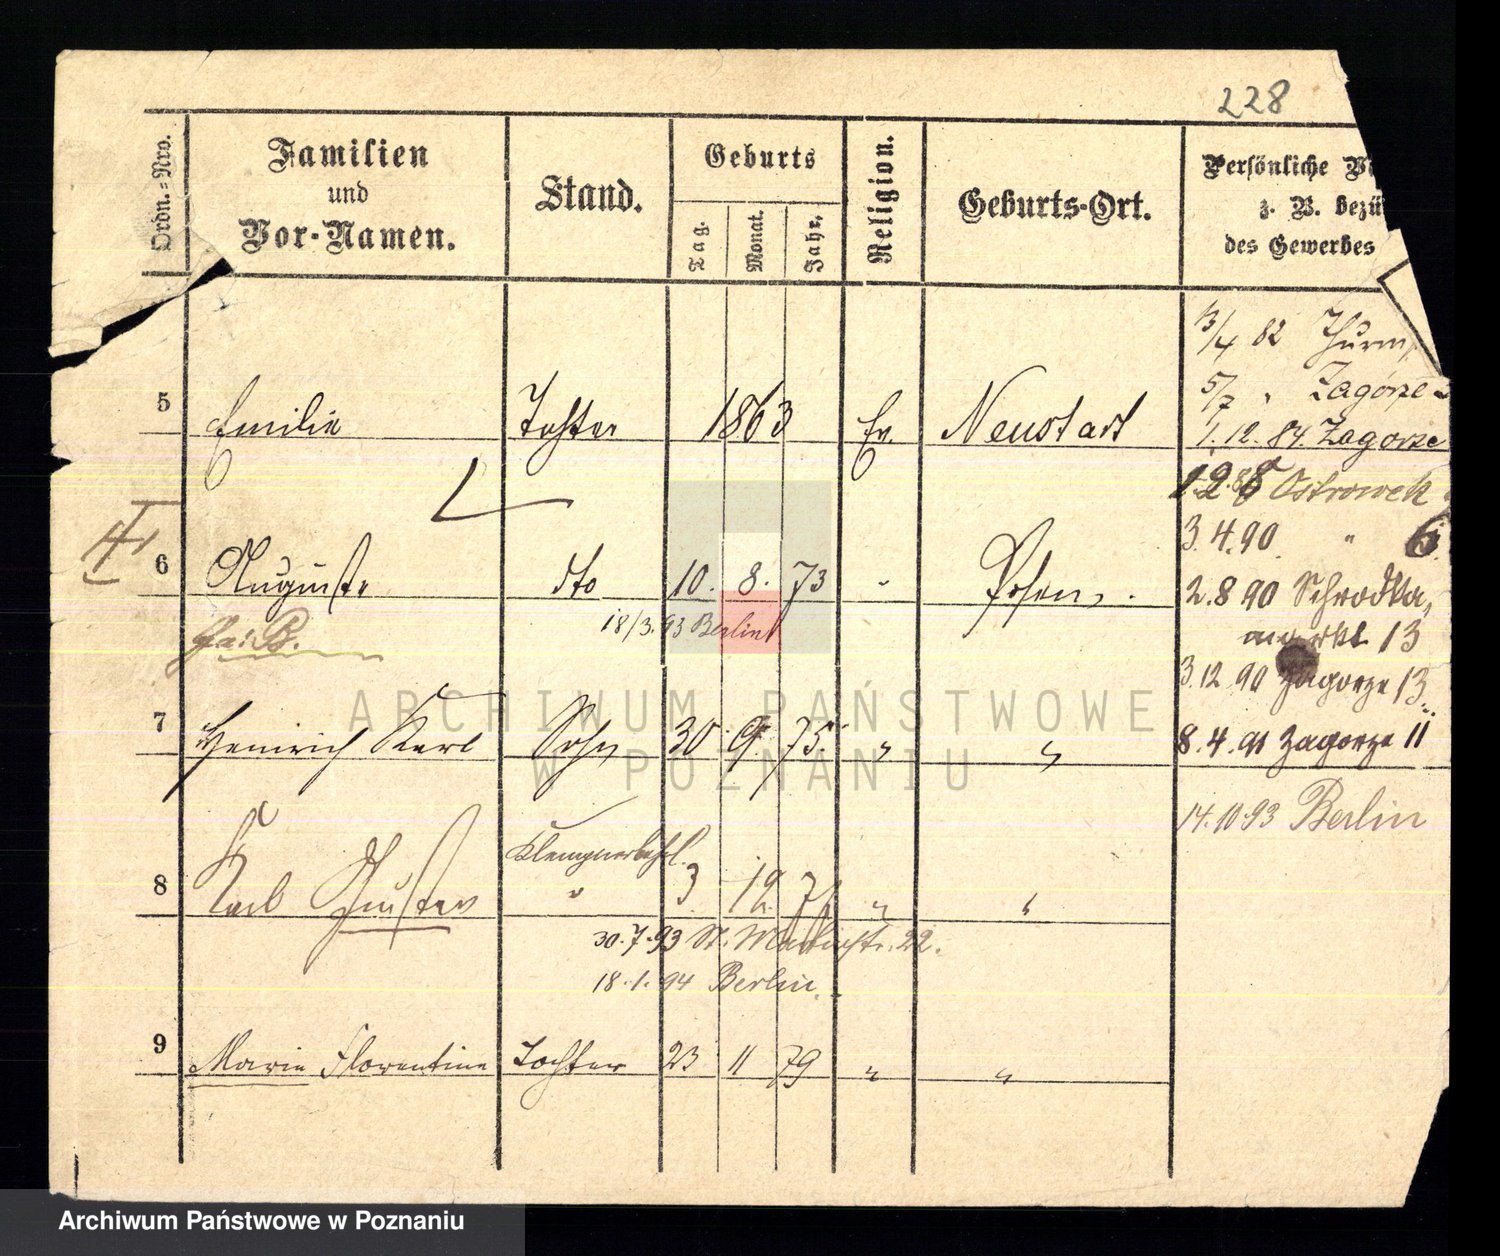 228
Ordn.=Nro.
Familien
und
Vor-Namen.
Stand.
Geburts
Tag.
Monat.
Jahr.
Religion.
Geburts-Ort.
Persönliche
z. B. bezü
des Gewerbes
13/4 82 Thurm
5/7 " Zagorze
5 Emilie Tochter 1863 Ev. Neustadt
1.12.84. Zagorze
Ostrowek
3.4.90 " 6
6 Auguste dto 10. 8. 73 " Posen.
2.8 90 Schrodka
markt 13
18/3.93 Berlin
3.12.90 Zagorze 13
7 Heinrich Karl Sohn 30 9. 75. " "
8.4.91 Zagorze 11
14.10.93 Berlin
Klempnerlehrl.
8 Karl Gustav " 3 " "
30.7.93 St. Martinstr. 22.
18.1.94 Berlin.
9 Marie Florentine Tochter 23 11 79 " "
ARCHIWUM PAŃSTWOWE
W POZNANIU
Archiwum Państwowe w Poznaniu